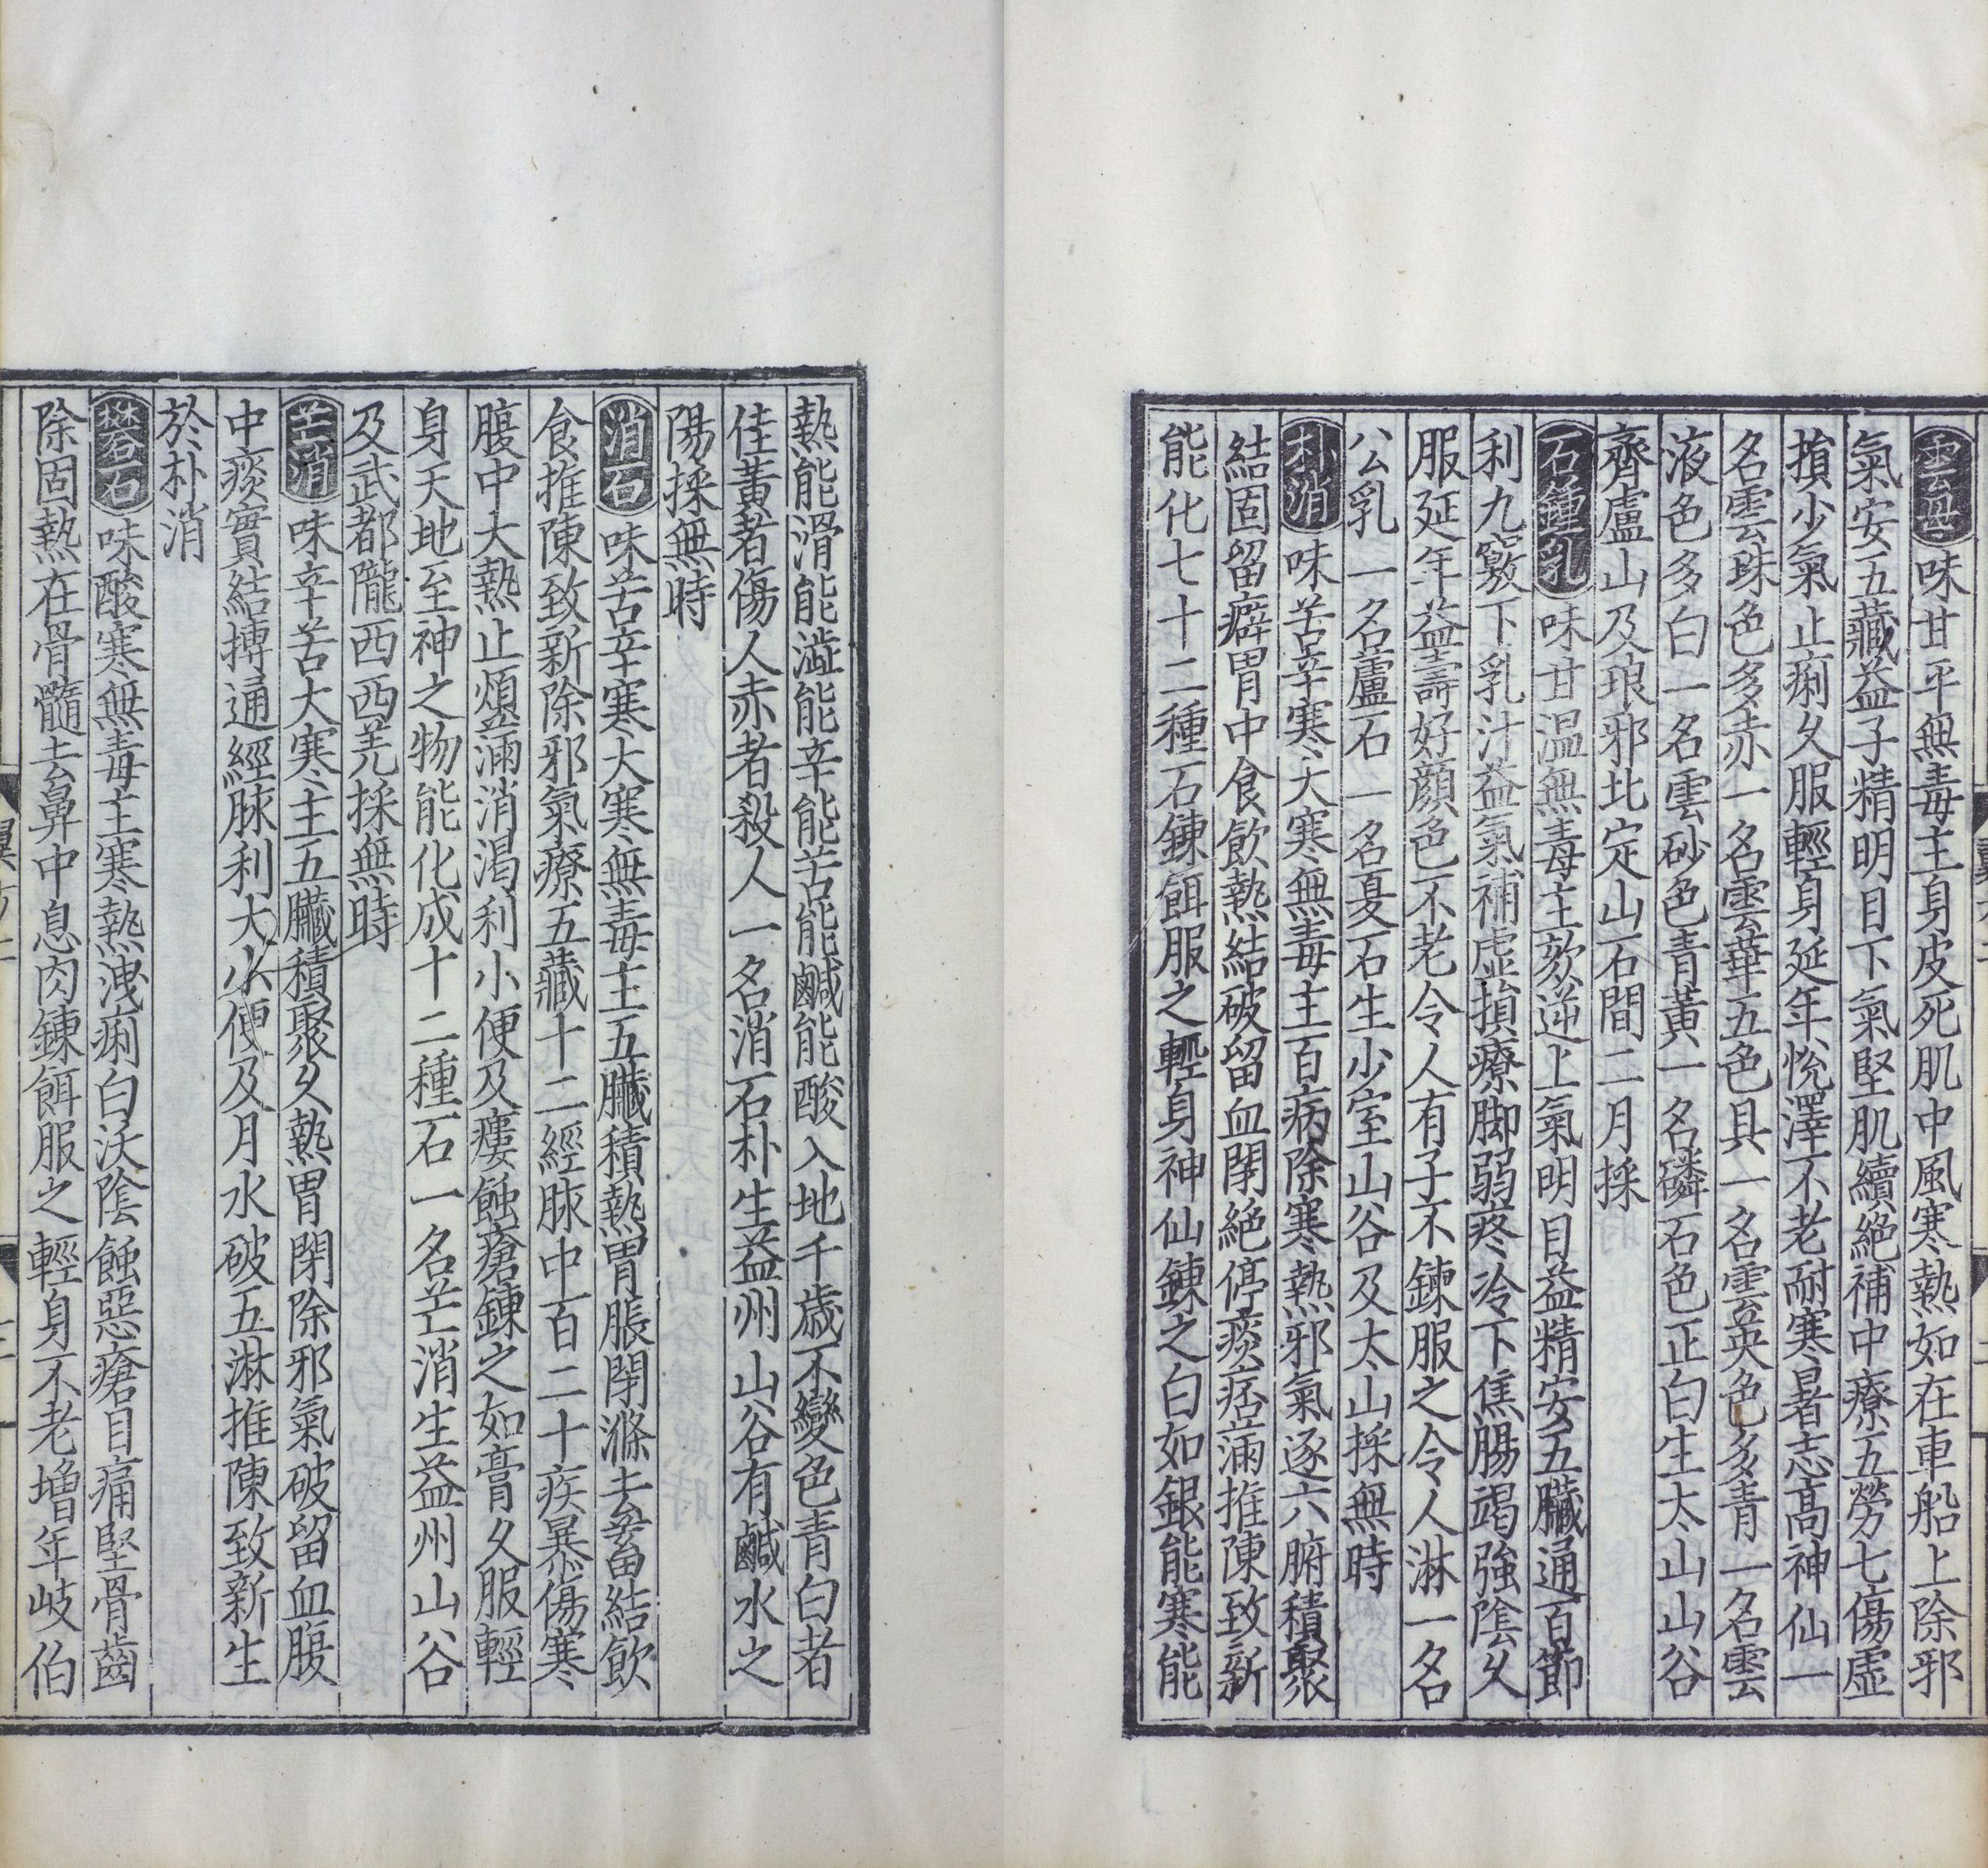 雲母味甘平無毒主身皮死肌中風寒熱如在車船上除邪
氣安五藏益子精明目下氣堅肌續絕補中療五勞七傷虛
損少氣止痢久服輕身延年悅澤不老耐寒暑志高神仙一
名雲珠色多赤一名雲華五色具一名雲英色多青一名雲
液色多白一名雲砂色青黃一名磷石色正白生太山山谷
齊盧山及琅邪北定山石間二月採
石鍾乳味甘溫無毒主欬逆上氣明目益精安五臟通百節
利九竅下乳汁益氣補虛損療脚弱疼冷下焦腸竭強陰久
服延年益壽好顏色不老令人有子不鍊服之令人淋一名
公乳一名蘆石一名夏石生少室山谷及太山採無時
朴消味苦辛寒大寒無毒主百病除寒熱邪氣逐六腑積聚
結固留癖胃中食飲熱結破留血閉絕停痰痞滿推陳致新
能化七十二種石鍊餌服之輕身神仙鍊之白如銀能寒能
熱能滑能澁能辛能苦能鹹能酸入地千歲不變色青白者
佳黃者傷人赤者殺人一名消石朴生益州山谷有鹹水之
陽採無時
消石味苦辛寒大寒無毒主五臟積熱胃脹閉滌去蓄結飲
食推陳致新除邪氣療五藏十二經脉中百二十疾暴傷寒
腹中大熱止煩滿消渴利小便及瘻蝕瘡鍊之如膏久服輕
身天地至神之物能化成十二種石一名芒消生益州山谷
及武都隴西西羌採無時
芒消味辛苦大寒主五臟積聚久熱胃閉除邪氣破留血腹
中痰實結搏通經脉利大小便及月水破五淋推陳致新生
於朴消
礬石味酸寒無毒主寒熱洩痢白沃陰蝕惡瘡目痛堅骨齒
除固熱在骨髓去鼻中息肉鍊餌服之輕身不老增年岐伯